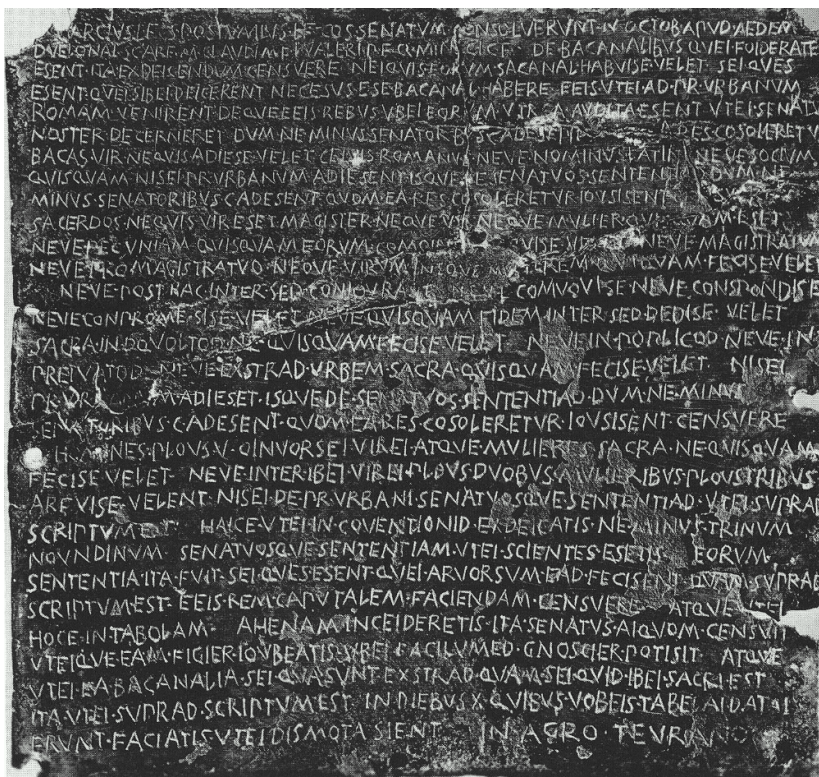 MARCIVS·L·F·S·POSTVMIVS·L·F·COS·SENATVM·CONSOLVERVNT·N·OCTOB·APVD·AEDEM
DVELONAI·SC·ARF·M·CLAVDI·M·F·VALERI·P·F·Q·MINVCI·C·F· DE·BACANALIBVS·QVEI·FOIDERATE
ESENT·ITA·EXDEICENDVM·CENSVERE· NEIQVIS·EORVM·SACANAL·HABVISE·VELET· SEI·QVES
ESENT·QVEI·SIBEI·DEICERENT·NECESVS·ESE·BACANAL·HABERE·EEIS·VTEI·AD·PR·VRBANVM
ROMAM·VENIRENT·DEQVE·EEIS·REBVS·VBEI·EORVM·AVDITA·ESENT·VTEI·SENATV
NOSTER·DECERNERET·DVM·NE·MINVS·SENATORBVS·ADESENT· RES·COSOLERETV
BACAS·VIR·NEQVIS·ADIESE·VELET·CEIVIS·ROMANVS·NEVE·NOMINVS·LATINI·NEVE·SOCIVM
QVISQVAM·NISEI·PR·VRBANVM·ADIESENT·ISQVE·SENATVOS·SENTENTIAD·DVM·NE
MINVS·SENATORIBVS·C·ADESENT·QVOM·EA·RES·COSOLERETVR·IOVSISENT·
SACERDOS·NEQVIS·VIR·ESET·MAGISTER·NEQVE·VIR·NEQVE·MVLIER·QVISQVAM·ESET
NEVE·PECVNIAM·QVISQVAM·EORVM·COMOINEM· VELET·NEVE·MAGISTRATVM
NEVE·PRO·MAGISTRATVD·NEQVE·VIRVM·NEQVE·MVLIEREM·QVIQVAM·FECISE·VELET
NEVE·POST·HAC·INTER·SED·CONIOVRASE·NEVE·COMVOVISE·NEVE·CONSPONDISE
NEVE·CONPROMESISE·VELET·NEVE·QVISQVAM·FIDEM·INTER·SED·DEDISE· VELET
SACRA·IN·DQVOLTOD·NE·QVISQVAM·FECISE·VELET· NEVE·IN·POPLICOD·NEVE·IN
PREIVATOD·NEVE·EXSTRAD·VRBEM·SACRA·QVISQVAM·FECISE·VELET· NISEI
PR·VRBANVM·ADIESET·ISQVE·DE·SENATVOS·SENTENTIAD·DVM·NE·MINVS
SENATORIBVS·C·ADESENT·QVOM·EA·RES·COSOLERETVR·IOVSISENT·CENSVERE
HOMINES·PLOVS·V·OINVORSEI·VIREI·ATQVE·MVLIERES·SACRA·NE·QVISQVAM
FECISE·VELET· NEVE·INTER·IBEI·VIREI·PLOVS·DVOBVS·MVLIERIBVS·PLOVS·TRIBVS
ARFVISE·VELENT·NISEI·DE·PR·VRBANI·SENATVOSQVE·SENTENTIAD·VTEI·SVPRAD
SCRIPTVM·EST· HAICE·VTEI·IN·COVENTIONID·EXDEICATIS·NE·MINVS·TRINVM
NOVNDINVM· SENATVOSQVE·SENTENTIAM·VTEI·SCIENTES·ESETIS· EORVM
SENTENTIA·ITA·FVIT·SEI·QVES·ESENT·QVEI·ARVORSVM·EAD·FECISENT·QVAM·SVPRAD
SCRIPTVM·EST· EEIS·REM·CAPVTALEM·FACIENDAM·CENSVERE· ATQVE·VTEI
HOCE·IN·TABOLAM· AHENAM·INCEIDERETIS·ITA·SENATVS·AIQVOM·CENSVIT
VTEIQVE·EAM·FIGIER·IOVBEATIS·VBEI·FACILVMED·GNOSCIER·POTISIT· ATQVE
VTEI·EA·BACANALIA·SEI·QVA·SVNT·EXSTRAD·QVAM·SEI·QVID·IBEI·SACRI·EST
ITA·VTEI·SVPRAD·SCRIPTVM·EST· IN·DIEBVS·X·QVIBVS·VOBEIS·TABELAI·DATAI
ERVNT·FACIATIS·VTEI·DISMOTA·SIENT· IN·AGRO·TEVRANO